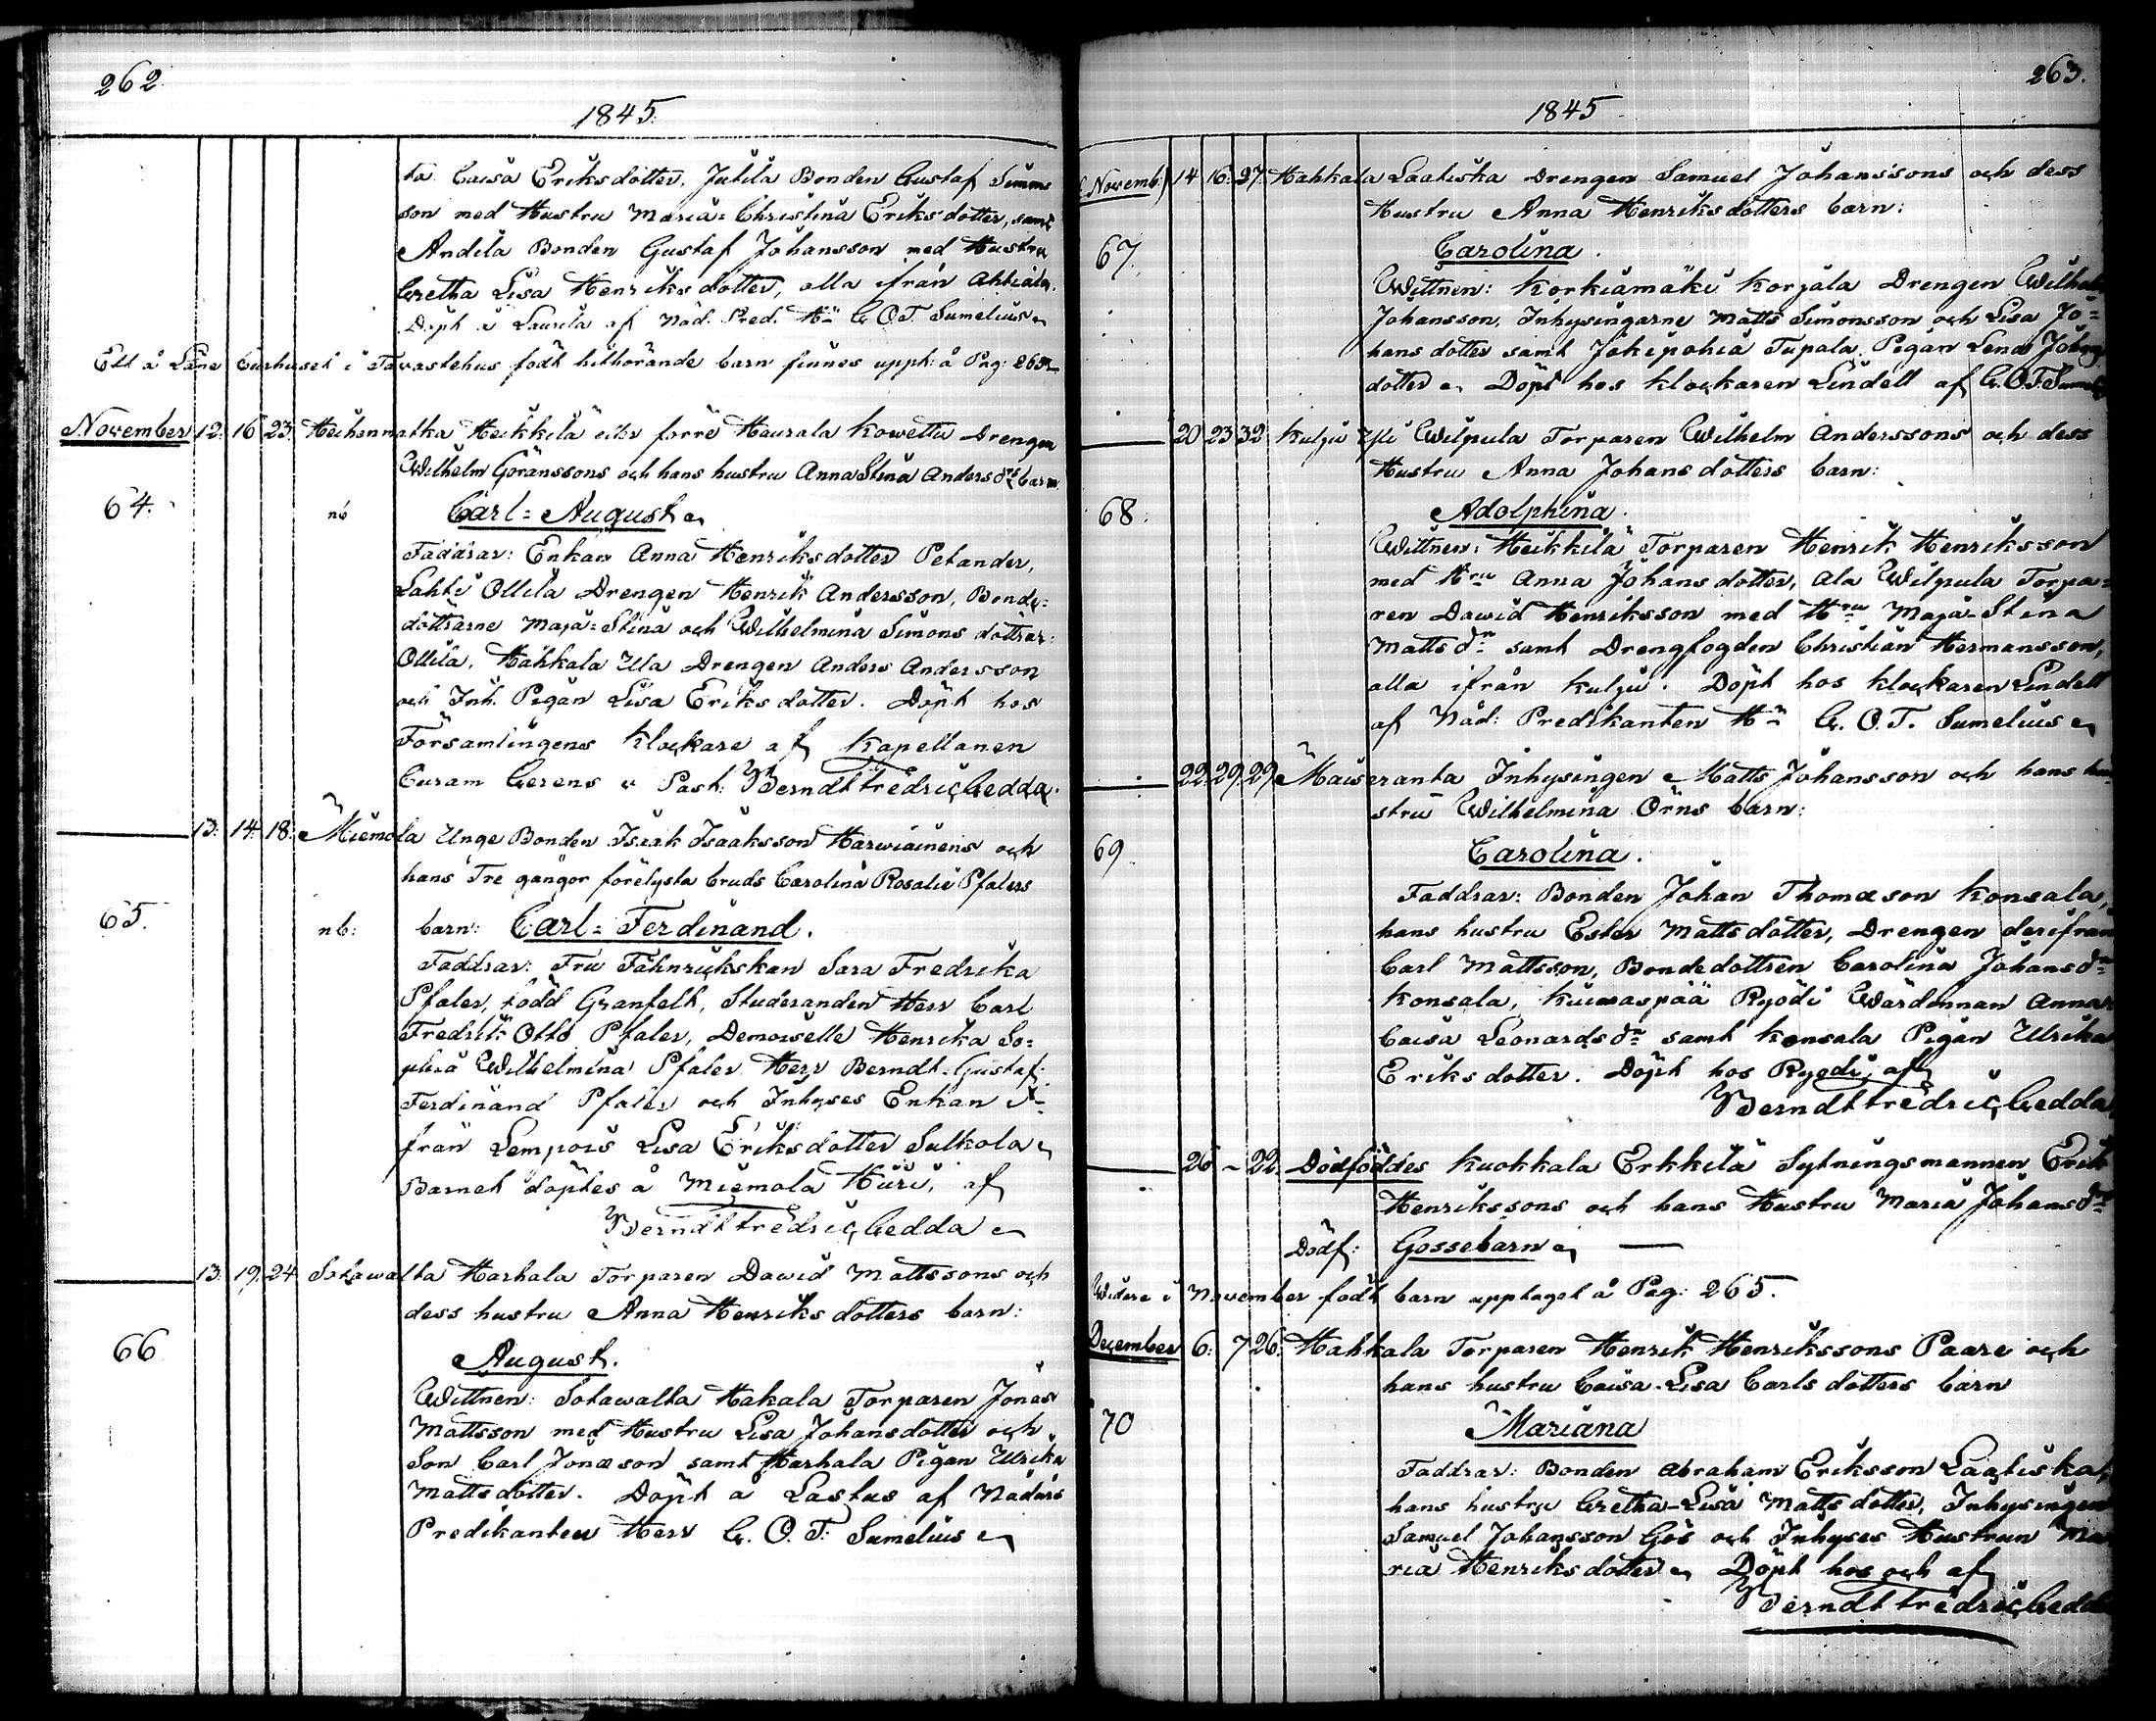 262.
1845.
ta Caisa Eriksdotter, Jutila Bonden Gustaf Simms
son med Hustru Maria-Christina Eriksdotter, samt
Andila Bonden Gustaf Johansson med Hustru
Gretha Lisa Henriksdotter, alla ifrån Ahtiala.
Döpt å Laurila af Nåd. Pred. Hr G. O. T. Sumelius
Ett å Läne Curhuset i Tavastehus födt hithörande barn finnes uppt: å Pag: 265
November 12. 16 23. Heikkilä eller förre Haurala Kowettu Drengen
Wilhelm Göranssons och hans hustru Anna Stina Andersdrs barn.
64. nb Carl=August
Faddrar: Enkan Anna Henriksdotter Petander,
Lahti Ollila Drengen Henrik Andersson, Bonde=
döttrarne Maja=Stina och Wilhelmina Simons döttrar
Ollila, Hahkala Ula Drengen Anders Andersson
och Inh. Pigan Lisa Eriksdotter. Döpt hos
Församlingens Klockare af Kapellanen
Curam Gerens v Past: Berndt Fredric Gedda.
13. 14. 18. Miemola Unge Bonden Isaak Isaaksson Harwiainens och
hans Tre gångor förelysta Bruds Carolina Rosalie Pfalers
65. nb: barn: Carl=Ferdinand.
Faddrar: Fru Fähnrickskan Sara Fredrika
Pfaler, född Granfelt, Studeranden Herr Carl
Fredrik Otto Pfaler, Demoiselle Henrika So=
phia Wilhelmina Pfaler Herr Berndt-Gustaf
Ferdinand Pfaler och Inhyses Enkan i=
från Lempois Lisa Eriksdotter Sulkola
Barnet döptes å Miemola Hüri, af
Berndt Fredric Gedda
13. 19. 24. Sotawalta Harhala Torparen Dawid Mattssons och
dess hustru Anna Henriksdotters barn:
66 August.
Wittnen: Sotawalta Hakala Torparen Jonas
Mattsson med Hustru Lisa Johansdotter och
Son Carl Jonæson samt Harhala Pigan Ulrika
Mattsdotter. Döpt å Lastus af Nådårs
Predikanten Herr G. O. T. Sumelius
263.
1845
Novemb. 14 16. 27. Hahkala Laatiska Drengen Samuel Johanssons och dess
Hustru Anna Henriksdotters barn:
67. Carolina.
Wittnen: Korkiamäki Korjala Drengen Wilhelm
Johansson, Inhysingarne Matts Simonsson och Lisa Jo=
hansdotter samt Jokipohia Tupala Pigan Lena Johans
dotter Döpt hos Klockaren Lindell af G. O. T. Sumelius
20 23 32 Kulju Yli Wilpula Torparen Wilhelm Anderssons och dess
Hustru Anna Johansdotters barn:
68. Adolphina.
Wittnen: Heikkilä Torparen Henrik Henriksson
med Hru Anna Johansdotter, Ala Wilpula Torpa=
ren Dawid Henriksson med Hru Maja-Stina
Matts dr samt Drengfogden Christian Hermansson,
alla ifrån Kulju. Döpt hos Klockaren Lindell
af Nåd: Predikanten Hr G. O. T. Sumelius
22. 29. 29. Maiseranta Inhysingen Matts Johansson och hans hu
stru Wilhelmina Örns barn:
69. Carolina.
Faddrar: Bonden Johan Thomæson Konsala,
hans hustru Ester Mattsdotter, Drengen derifrån
Carl Mattsson, Bondedottren Carolina Johans dr
Konsala, Ryödi Wärdinnan Anna
Caisa Leonards dr samt Konsala Pigan Ulrika
Eriksdotter. Döpt hos Ryödi, af
Berndt Fredric Gedda
26 ~ 22. Dödföddes Kuokkala Erkkilä Sytningsmannen Erik
Henrikssons och hans Hustru Maria Johans dr
Dödf: Gossebarn
Widare i November födt barn upptaget å Pag: 265.
December 6. 7 26. Hahkala Torparen Henrik Henrikssons Paare och
hans hustru Caisa-Lisa Carlsdotters barn
70 Mariana
Faddrar: Bonden Abraham Eriksson Laatiska,
hans hustru Gretha-Lisa Mattsdotter, Inhysingen
Samuel Johansson Gös och Inhyses Hustrun Ma
ria Henriksdotter Döpt hos och af
Berndt Fredric Gedda